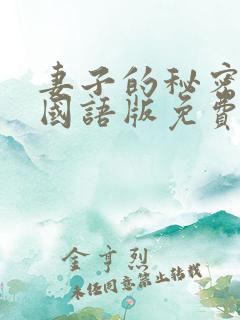 妻子的秘密
國語版免費
金亨烈
未任同意禁止转载